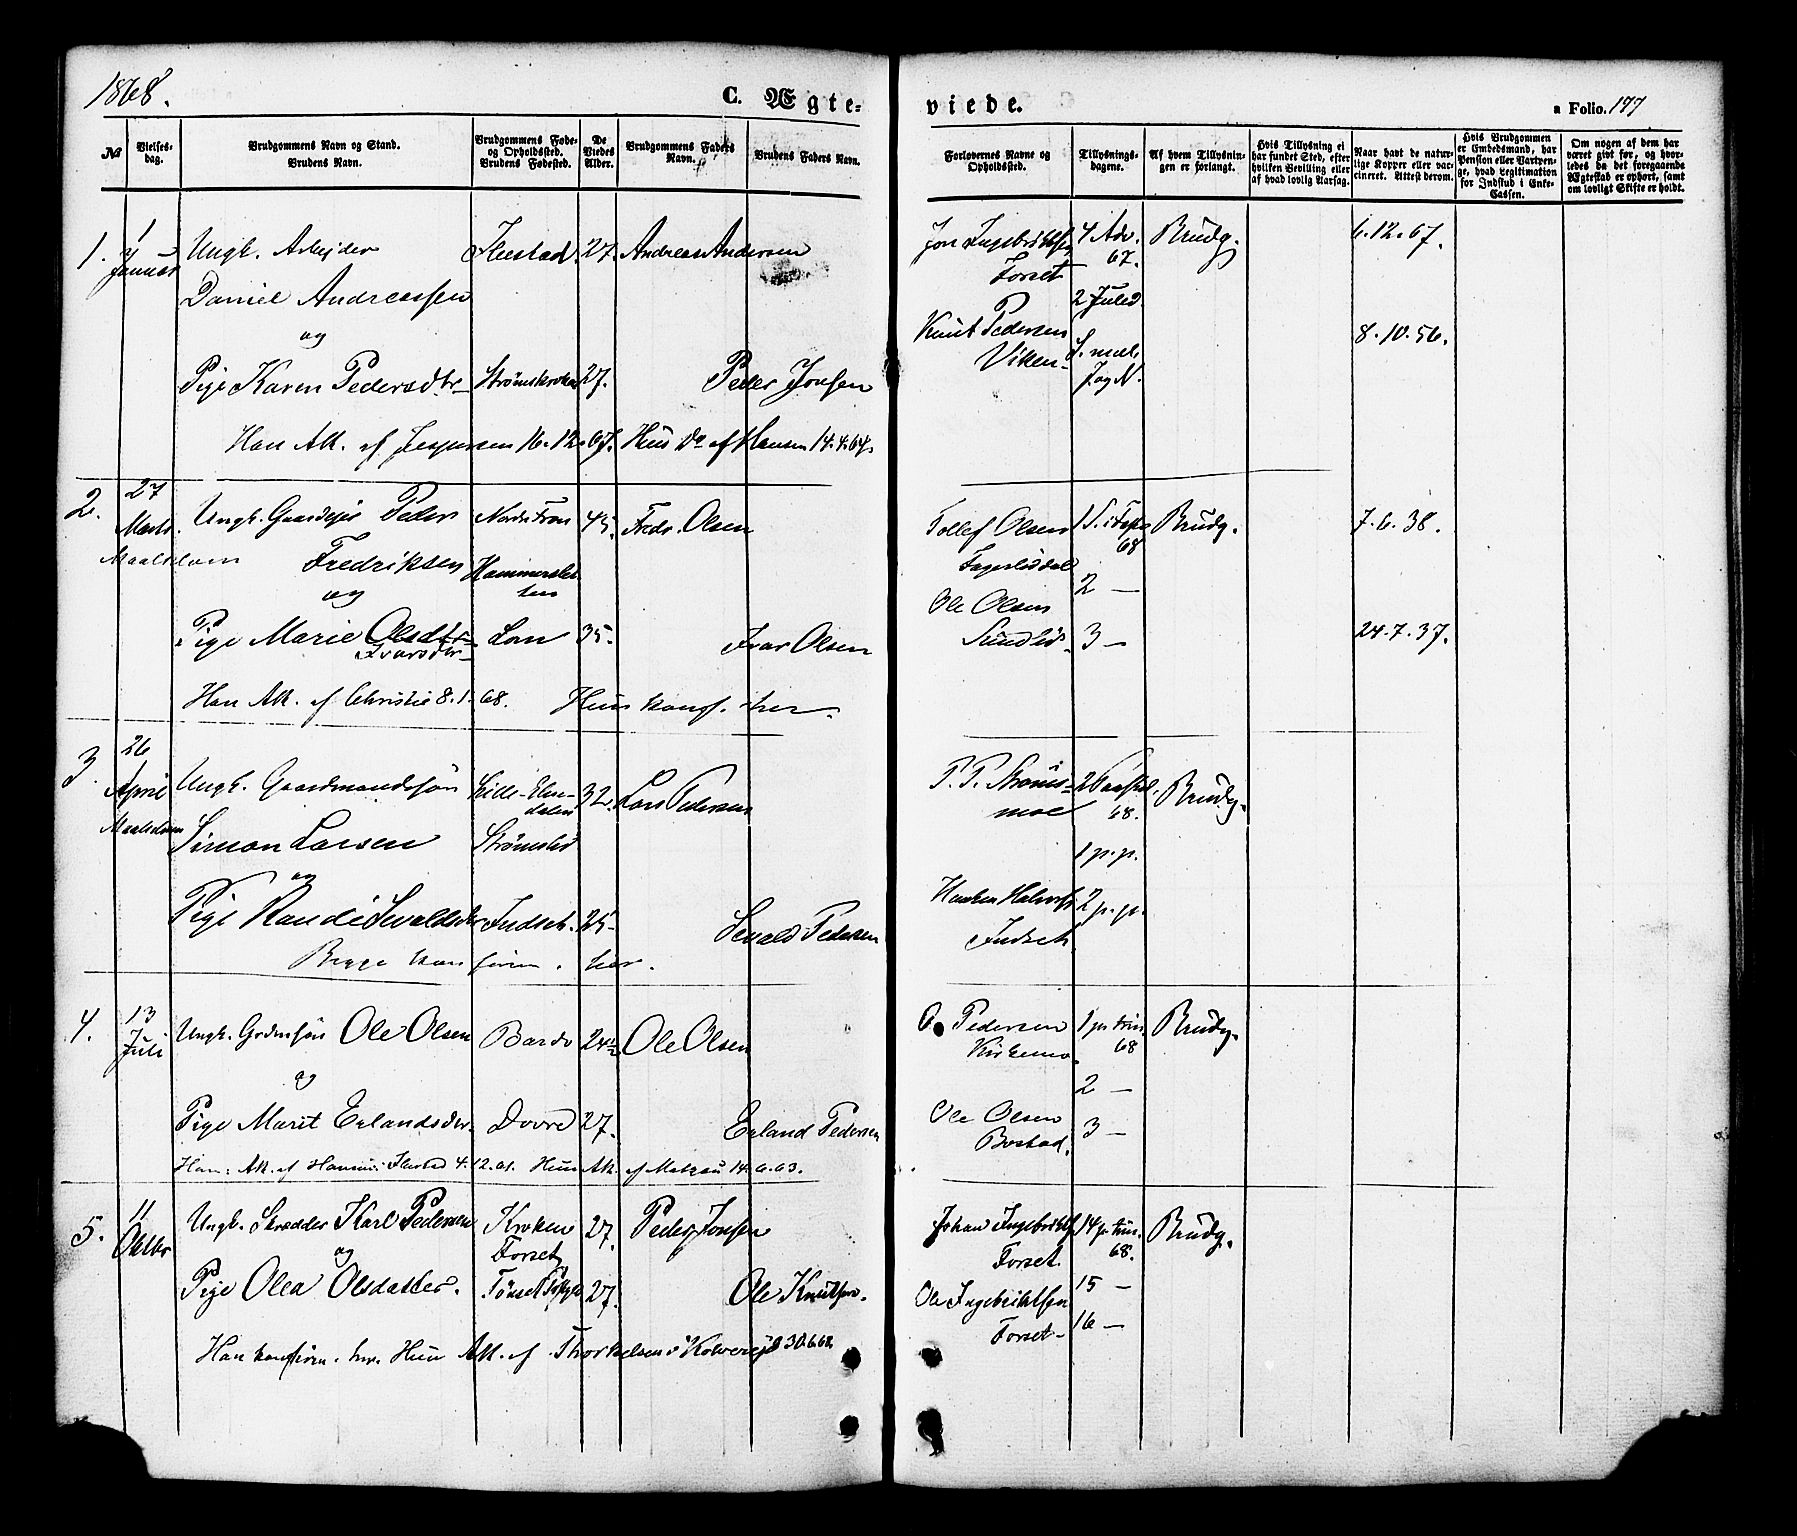 1868.
C. Ægte-
viede.
a Folio. 177
№
Vielses-
dag.
Brudgommens Navn og Stand.
Brudens Navn.
Brudgommens Føde-
og Opholdssted.
Brudens Fødested.
De
Viedes
Alder.
Brudgommens Faders
Navn.
Brudens Faders Navn.
Forlovernes Navne og
Opholdssted.
Tillysnings-
dagene.
Af hvem Tillysnin-
gen er forlangt.
Hvis Tillysning ei
har fundet Sted, efter
hvilken Bevilling eller
af hvad lovlig Aarsag.
Naar havt de natur-
lige Kopper eller vac-
cineret. Attest derom.
Hvis Brudgommen
er Embedsmand, har
Pension eller Vartpen-
ge, hvad Legitimation
for Indskud i Enke-
Cassen.
Om nogen af dem har
været gift før, og hvor-
ledes da det foregaaende
Ægteskab er ophørt, samt
om lovligt Skifte er holdt.
1. Januar Ungk. Arbejder Flestad. 27. Andreas Andersen
Daniel Andreassen
og
Pige Karen Pedersdtr Strømskroken 27. Peder Jonsen
Han Att. af Jespersen 16.12.67. Hun Do af Hansen 14.4.64.
Jon Ingebrigtsen 4 Adv. 67. Brudg. 6.12.67.
Forset
2 Juled.
Knut Pedersen 8.10.56.
Viken
2. 27 Marts Ungk. Gaardejer Peder Nordre Fron 45. Fredr. Olsen
Maalsdalen Fredriksen
og
Pige Marie Olsdtr Lom 35. Ivar Olsen
Ivarsdtr
Han Att. af Christie 8.1.68. Hun konf. her.
Tollef Olsen 1 S. i Faste 68 Brudg. 7.6.38.
Fagerlidal
2 —
Ole Olsen
Sundlid 3 — 24.7.37.
3. 26 April Ungk. Gaardmandssøn 32. Lars Pedersen
Simon Larsen Strømslid
og
Pige Randi Sevaldsdr Indset. 25 Sevald Pedersen
Begge konfirm. her.
P. P. Strøms- 68. Brudg.
moe
1 p. p.
2 p. p.
Indset
4. 13 Juli Ungk. Grdmsøn Ole Olsen Bardo 24½ Ole Olsen
og
Pige Marit Erlandsdr. Dovre 27. Erland Pedersen
Han: Att. af 4.12.61. Hun Att. af Matzau 14.6.63.
O. Pedersen 1 p. trin. 68 Brudg.
Kirkemo
2 —
Ole Olsen
Bostad. 3 —
5. 11 Oktbr Ungk. Skrædder Karl Pedersen Kroken 27. Peder Jonsen
og Forset
Pige Olea Olsdatter. 27. Ole Knutsen.
Han konfirm. her. Hun Att. af Thorkelsen i Kolvereid 30.6.68.
Johan Ingebrigts 14 p. trin. 68. Brudg.
Forset.
15 —
Ole Ingebrigtsen
Forset 16 —